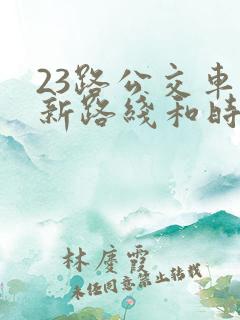 23路公交车
新路线和时
林庆霞
未经同意禁止转载